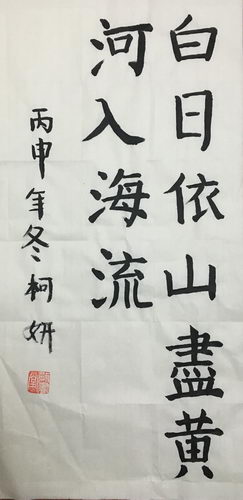 白日依山盡黄
河入海流
丙申年冬柯妍